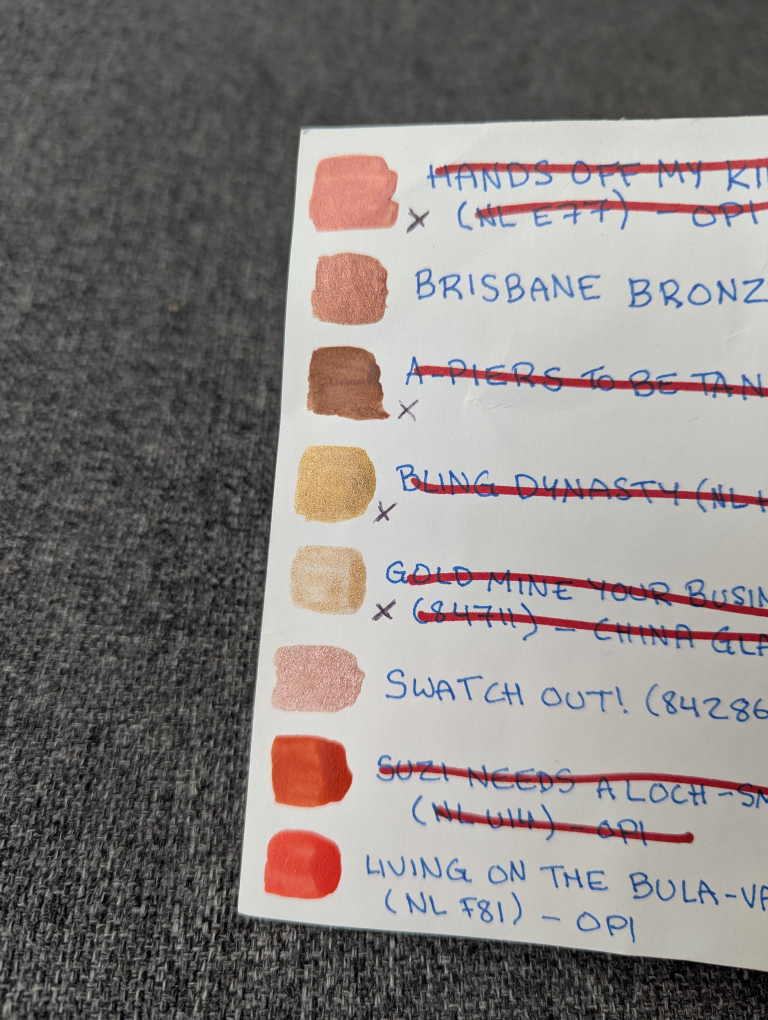 HANDS OFF MY KI
X (NL E77) - OPI
BRISBANE BRONZ
A-PIERS TO BE TAN
X
BLING DYNASTY (NL H
X
GOLD MINE YOUR BUSIN
X (84711) - CHINA GLA
SWATCH OUT! (84286
SUZI NEEDS A LOCH-SM
(NL U14) - OPI
LIVING ON THE BULA-VA
(NL F81) - OPI